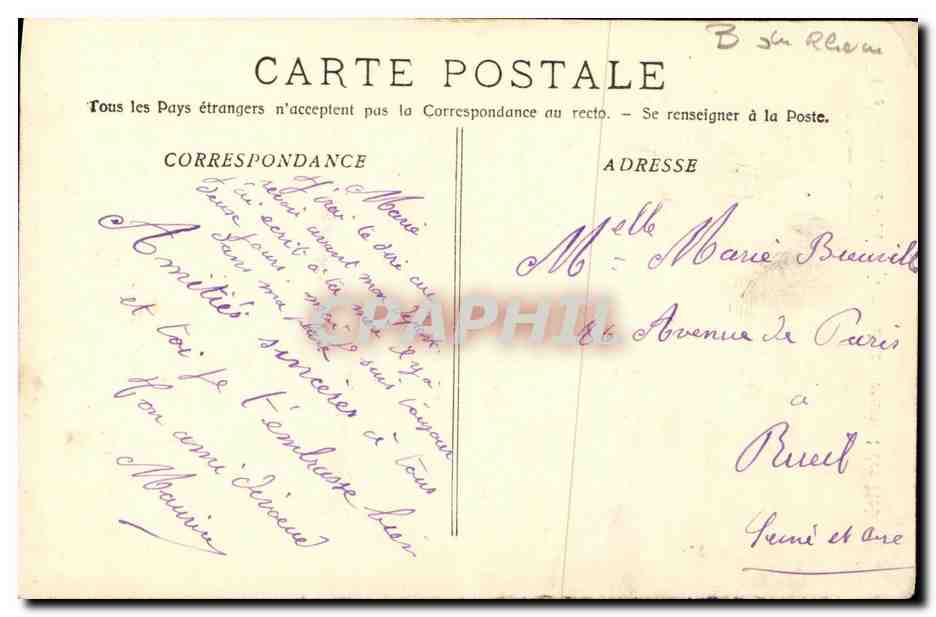 B du Rhône
CARTE POSTALE
Tous les Pays étrangers n'acceptent pas la Correspondance au recto. — Se renseigner à la Poste.
CORRESPONDANCE
Marie
J'irai te dire au
revoir avant mon départ.
J'ai écrit à ta mère il y a
deux jours mais je suis toujours
sans ma
Amitiés sincères à tous
et toi je t'embrasse bien
Ton ami dévoué
Maurice
ADRESSE
Melle Marie
86 Avenue de Paris
a
Rueil
Seine et Oise
CPAPHIL